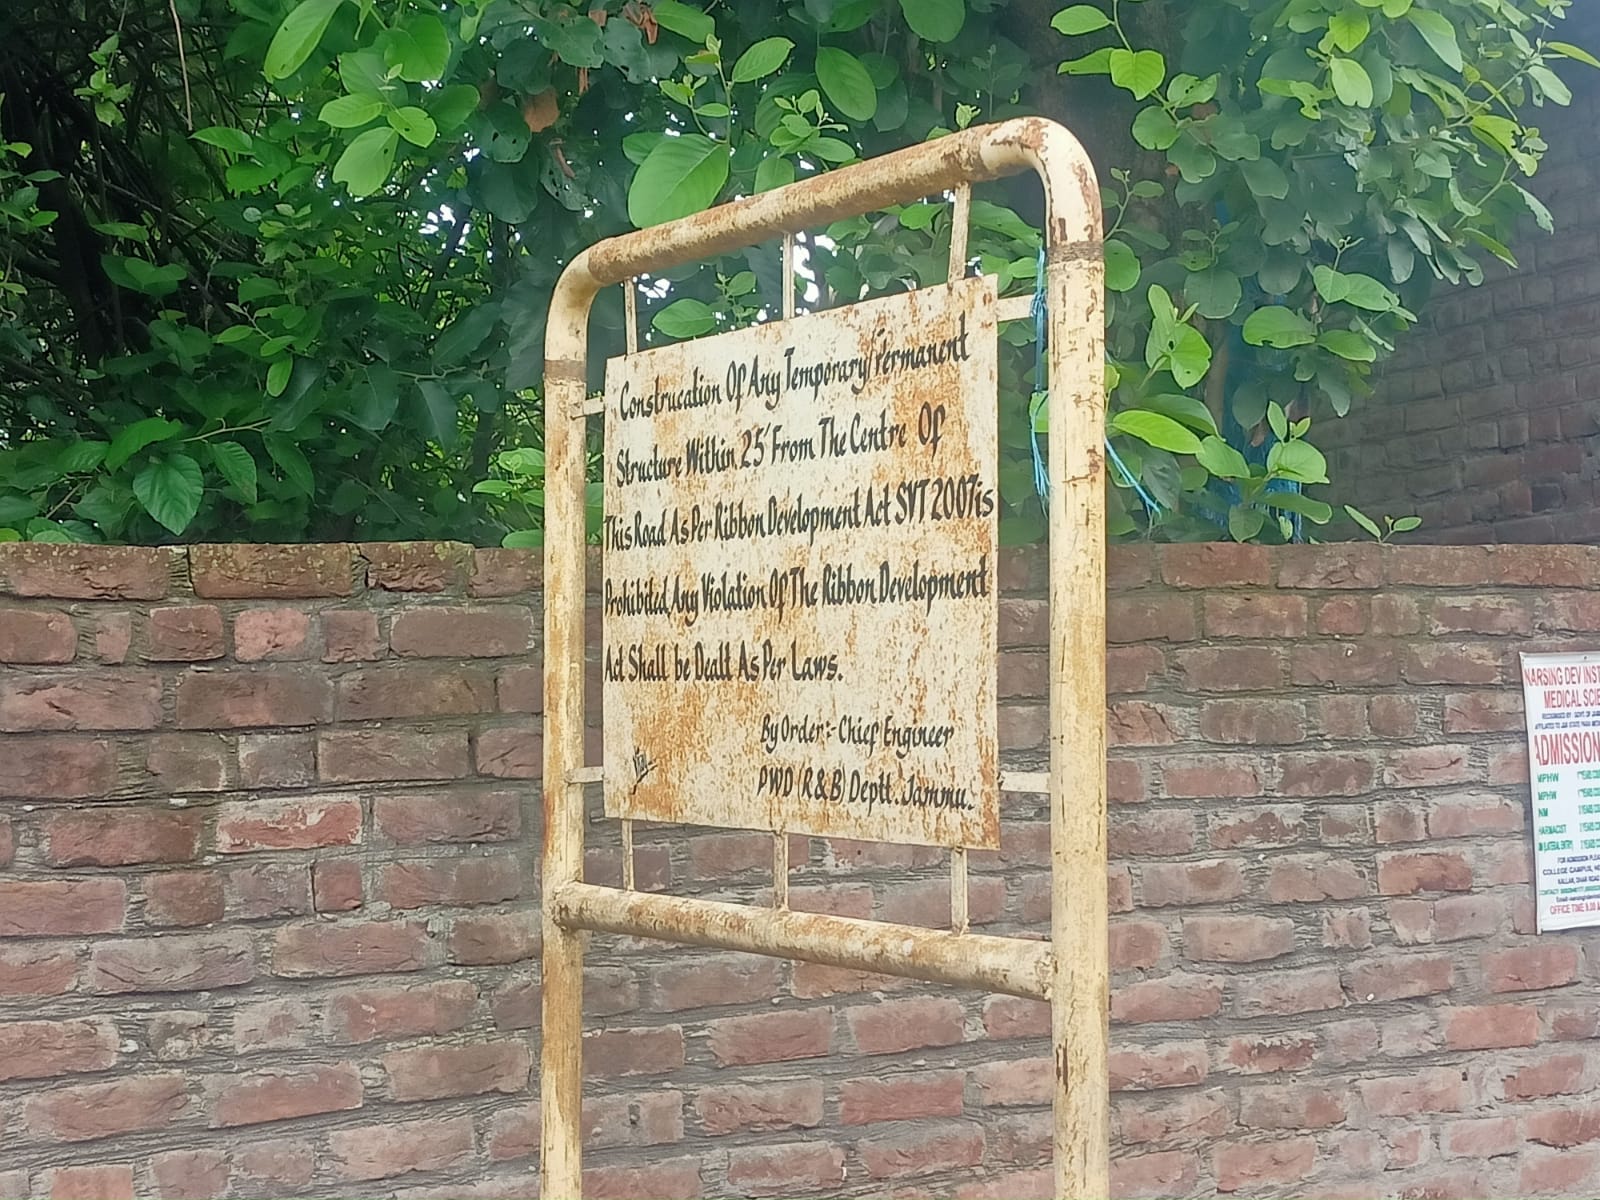 Construcation Of Any Temporary/Permanent
Structure Within 25' From The Centre Of
This Road As Per Ribbon Development Act SVT 2007is
Prohibited Any Violation Of The Ribbon Development
Act Shall be Dealt As Per Laws.
By Order:- Chief Engineer
PWD (R&B) Deptt. Jammu.
NARSING DEV INST
MEDICAL SCIE
ADMISSION
MPHW
MPHW
FOR ADMISSION PLEA
COLLEGE CAMPUS,
OFFICE TIME 9.30 A